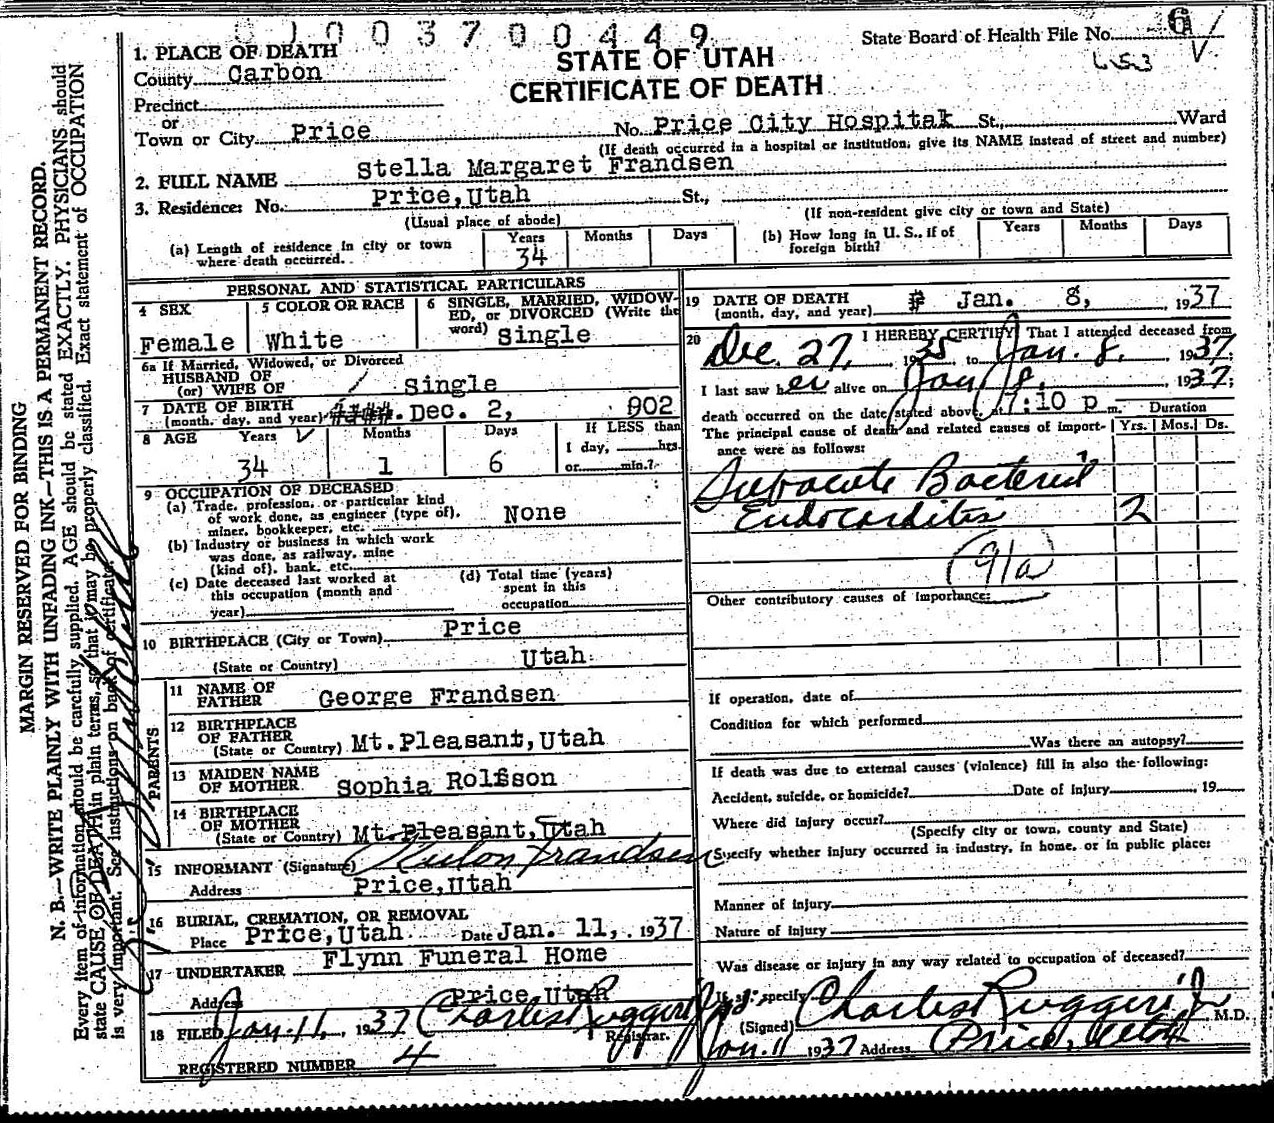 0 1 0 0 3 7 0 0 4 4 9
State Board of Health File No. 6
STATE OF UTAH
CERTIFICATE OF DEATH
1. PLACE OF DEATH
County Carbon
Precinct
or
Town or City Price No. Price City Hospitak St., Ward
(If death occurred in a hospital or institution, give its NAME instead of street and number)
2. FULL NAME Stella Margaret Frandsen
3. Residence: No. Price,Utah St.,
(Usual place of abode) (If non-resident give city or town and State)
(a) Length of residence in city or town where death occurred. Years 34 Months Days
(b) How long in U. S., if of foreign birth? Years Months Days
PERSONAL AND STATISTICAL PARTICULARS
4 SEX Female
5 COLOR OR RACE White
6 SINGLE, MARRIED, WIDOWED, or DIVORCED (Write the word) Single
6a If Married, Widowed, or Divorced
HUSBAND OF
(or) WIFE OF Single
7 DATE OF BIRTH
(month, day, and year) Dec. 2, 902
8 AGE Years 34 Months 1 Days 6 If LESS than 1 day, hrs. or min.?
9 OCCUPATION OF DECEASED
(a) Trade, profession, or particular kind of work done, as engineer (type of), miner, bookkeeper, etc. None
(b) Industry or business in which work was done, as railway, mine (kind of), bank, etc.
(c) Date deceased last worked at this occupation (month and year)
(d) Total time (years) spent in this occupation
10 BIRTHPLACE (City or Town) Price
(State or Country) Utah
PARENTS
11 NAME OF FATHER George Frandsen
12 BIRTHPLACE OF FATHER
(State or Country) Mt.Pleasant,Utah
13 MAIDEN NAME OF MOTHER Sophia Rolfson
14 BIRTHPLACE OF MOTHER
(State or Country) Mt.Pleasant,Utah
15 INFORMANT (Signature) Frandsen
Address Price,Utah
16 BURIAL, CREMATION, OR REMOVAL
Place Price,Utah Date Jan. 11, 1937
17 UNDERTAKER Flynn Funeral Home
Address Price Utah
18 FILED Jan. 11, 1937 Charles Ruggeri Jr
Registrar.
REGISTERED NUMBER 4
19 DATE OF DEATH
(month, day, and year) Jan. 8, 1937
20 I HEREBY CERTIFY, That I attended deceased from
Dec. 27, 1935 to Jan. 8, 1937;
I last saw her alive on Jan 8, 1937;
death occurred on the date stated above, at 7:10 p m.
The principal cause of death and related causes of importance were as follows:
Duration
Yrs. Mos. Ds.
Subacute Bacterial
Endocarditis 2
91a
Other contributory causes of importance:
If operation, date of
Condition for which performed
Was there an autopsy?
If death was due to external causes (violence) fill in also the following:
Accident, suicide, or homicide? Date of injury 19
Where did injury occur?
(Specify city or town, county and State)
Specify whether injury occurred in industry, in home, or in public place:
Manner of injury
Nature of injury
Was disease or injury in any way related to occupation of deceased?
If so, specify
(Signed) Charles Ruggeri Jr M.D.
Jan. 11 1937 Address Price, Utah
MARGIN RESERVED FOR BINDING
N. B.—WRITE PLAINLY WITH UNFADING INK—THIS IS A PERMANENT RECORD.
Every item of information should be carefully supplied. AGE should be stated EXACTLY. PHYSICIANS should
state CAUSE OF DEATH in plain terms, so that it may be properly classified. Exact statement of OCCUPATION
is very important. See instructions on back of certificate.